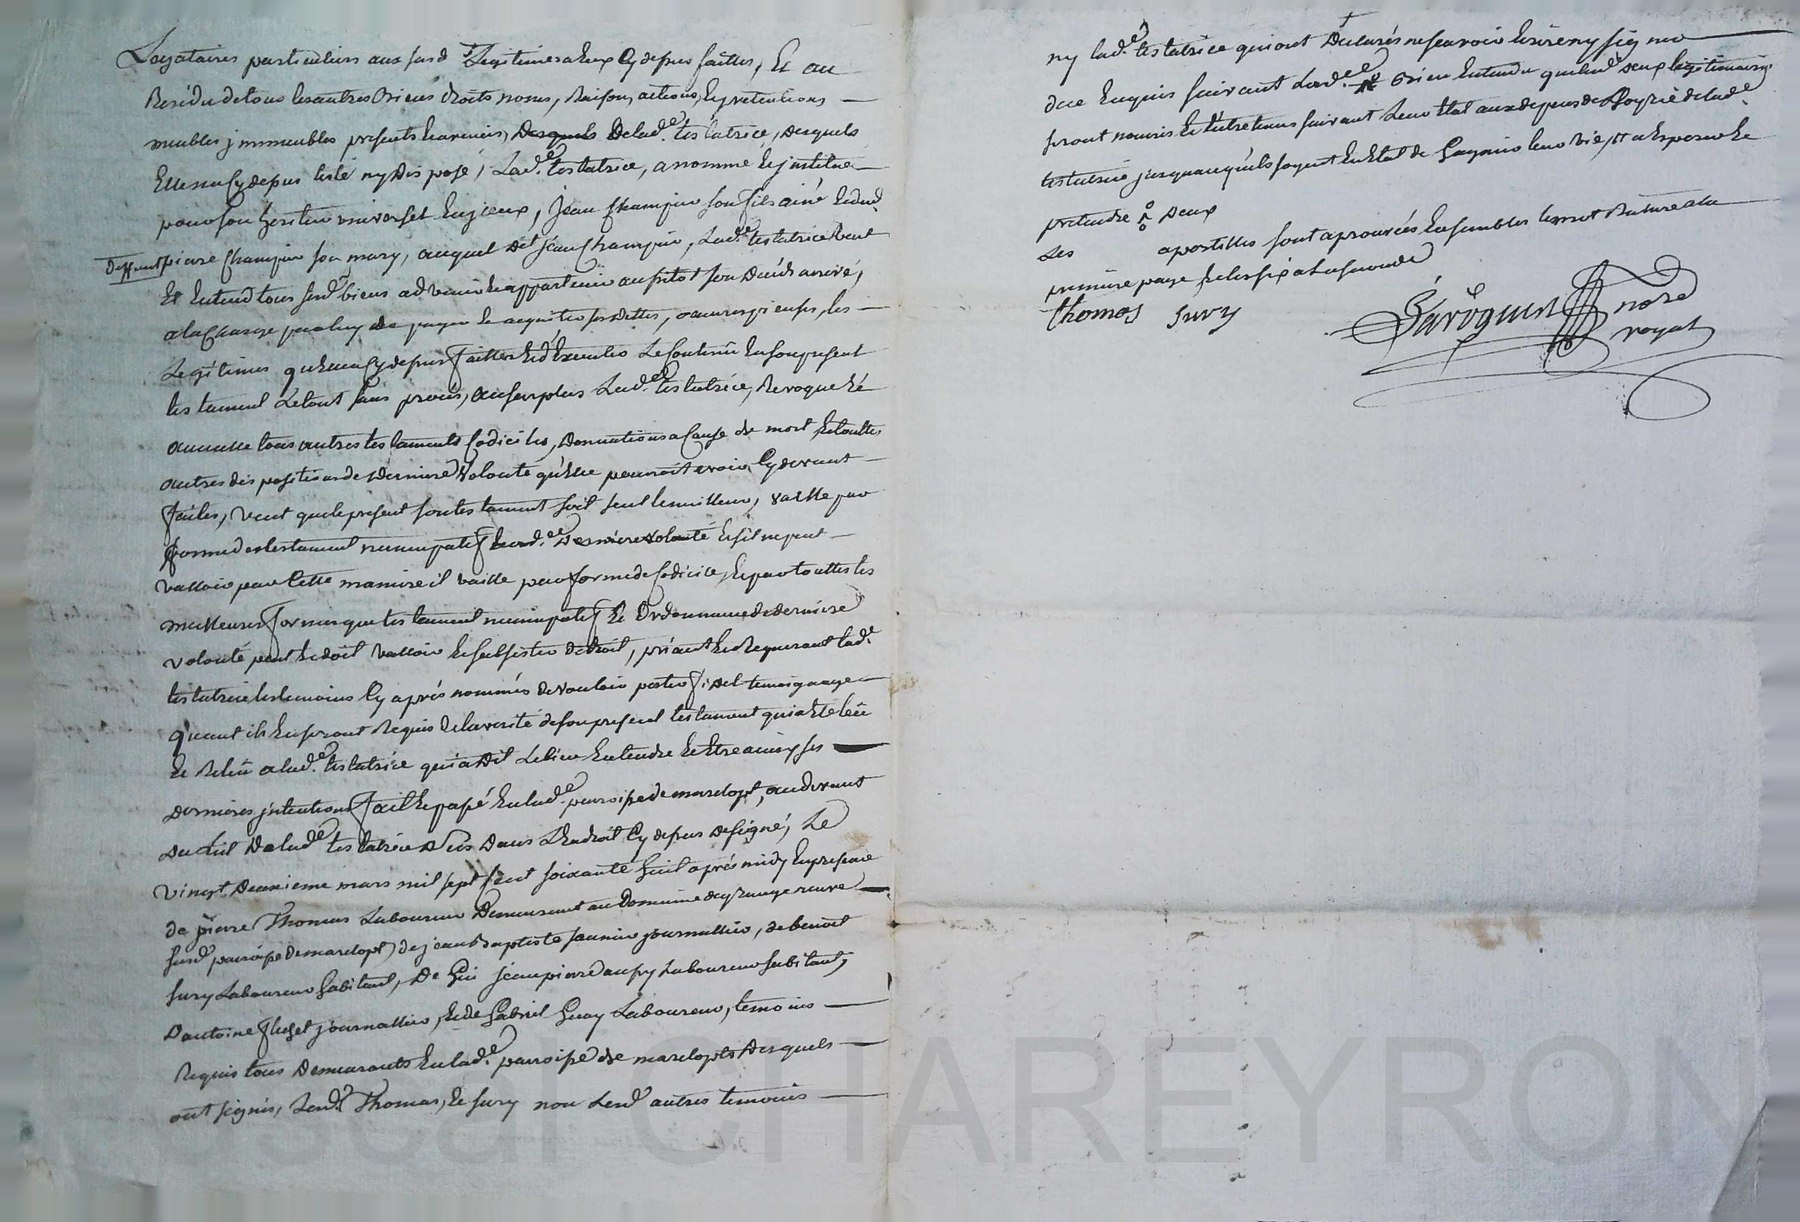 Legataires particuliers aux susd. Legitimes a Eux Cy depus faittes, Et au
Residu de tous les autres Biens droits noms, Raisons, actions, Et pretentions
meubles jmmeubles presents Et avenirs, Desquels De lad.e testatrice, desquels
Elle na Cy depus testé ny Disposé, Lad.e testatrice, a nommé Et jnstitue
pour son heritier universel Jean Champin son fils ainé Et dud.
deffunt pierre Champin son mary, auquel dit Jean Champin, Lad.e testatrice Veut
Et Entend tous sesd. biens advenir Et appartenir ausitot son Décés arrivé,
a la Charge par luy de payer Et acquitter ses dettes, oeuvres pieuses, les
Legitimes quElle a Cy depus faittes Et d'Executer Le Contenu En son present
testament Le tout sans procés, au surplus Lad.e testatrice, Revoque Et
annulle tous autres testaments Codiciles, Donnations a Cause de mort Et touttes
autres dispositions de Derniere Volonté qu'Elle pourroit avoir Cy devant
faites, Veut que le present son testament soit seul Le meilleur, vaille par
forme de testament nuncupatif Et sad.e Derniere Volonté Et sil ne peut
valloir par Cette maniere il vaille par forme de Codicile, Et par touttes les
meilleures formes que testament nuncupatif Et Ordonnance de derniere
volonté peut Et doit valloir Et subsister de droit, priant Et Requerant lad.e
testatrice les temoins Cy aprés nommés de vouloir porter fidel temoignage
quant ils En seront Requis de la verité de son present testament qui a Eté leu
Et Releu a lad.e testatrice qui a dit Le bien Entendre Et Etre ainsy ses
dernieres jntentions fait Et pasé En lad.e paroisse de marclopt, au devant
du Lit De lad.e testatrice Dans L'Endroit Cy depus designé, Le
vingt Deuxieme mars mil sept Cent soixante huit aprés midy En presence
de pierre Thomas Laboureur Demeurant au Domaine de grange neuve
susd. paroisse de marclopt, de jean Baptiste journallier, de benoit
Jury Laboureur habitant, De Jean pierre Laboureur habitant,
D'antoine journallier, Et de Gabriel Guay Laboureur, temoins
Requis tous Demeurants En lad.e paroisse de marclopt Desquels
ont signés, Lesd. Thomas, Et Jury non Lesd. autres temoins
ny lad.e testatrice qui ont Declarés ne scavoir Ecrire ny signer
de ce Enquis suivant Lord.ce Bien Entendu que lesd. deux legitimaires
seront nourris Et Entretenus suivant Leur Etat aux depens de L'hoyrie de lad.e
testatrice jusqu'a ce qu'ils soyent En Etat de Gagnier leur vie, Et a Esperer Et
pretendre deux
des apostilles sont aprouvées Ensembles la
premiere page
Thomas Jury
no.re
royal
Pascal CHAREYRON